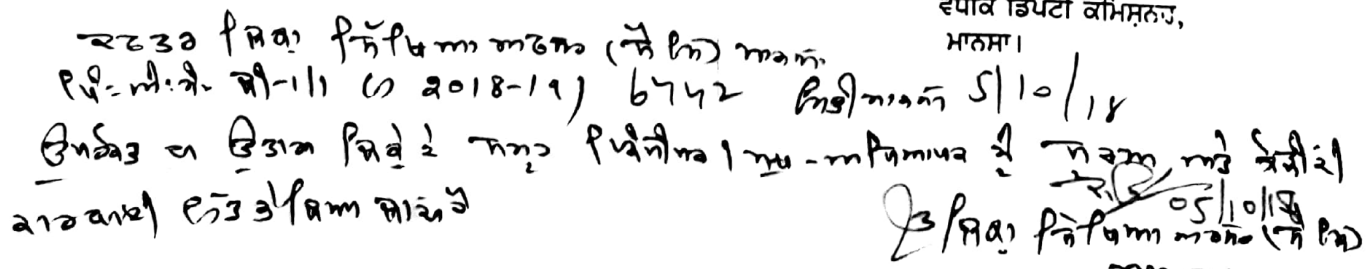 ਵਧੀਕ ਡਿਪਟੀ ਕਮਿਸ਼ਨਰ,
ਮਾਨਸਾ।
ਦਫਤਰ ਜਿਲ੍ਹਾ ਸਿੱਖਿਆ ਅਫਸਰ (ਸੈ ਸਿ) ਮਾਨਸਾ
2018-19) 6742 ਮਿਤੀ ਮਾਨਸਾ 5/10/18
ਉਪਰੋਕਤ ਦਾ ਉਤਾਰਾ ਜਿਲ੍ਹੇ ਦੇ ਸਮੂਹ ਪ੍ਰਿੰਸੀਪਲ / ਮੁੱਖ-ਅਧਿਆਪਕ ਨੂੰ ਸੂਚਨਾ ਅਤੇ ਲੋੜੀਂਦੀ
ਕਾਰਵਾਈ ਹਿੱਤ ਭੇਜਿਆ ਜਾਂਦਾ ਹੈ
05/10/18
ਜਿਲ੍ਹਾ ਸਿੱਖਿਆ ਅਫਸਰ (ਸੈ ਸਿ)